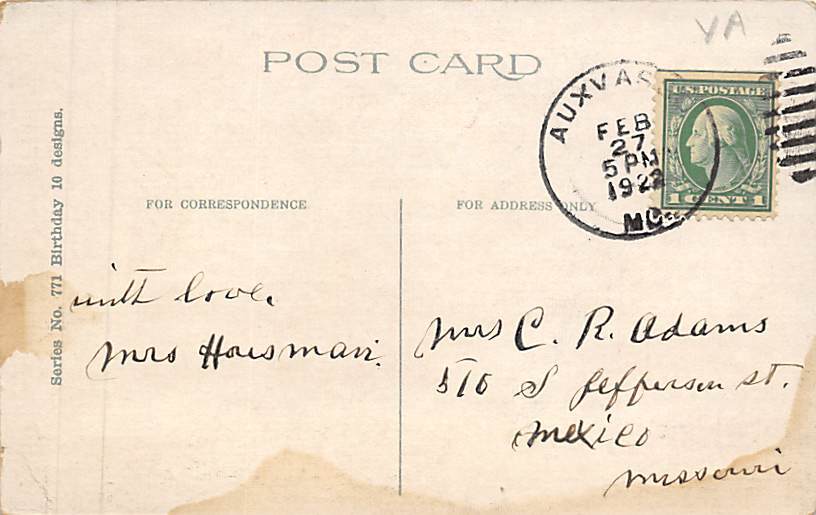 VA
POST CARD
AUXVAS
FEB
27
5 PM
1922
MO.
U.S. POSTAGE
1 CENT 1
Series No. 771 Birthday 10 designs.
FOR CORRESPONDENCE
FOR ADDRESS ONLY
with love.
Mrs Housman.
Mrs C. R. Adams
510 S Jefferson st.
Mexico
Missouri